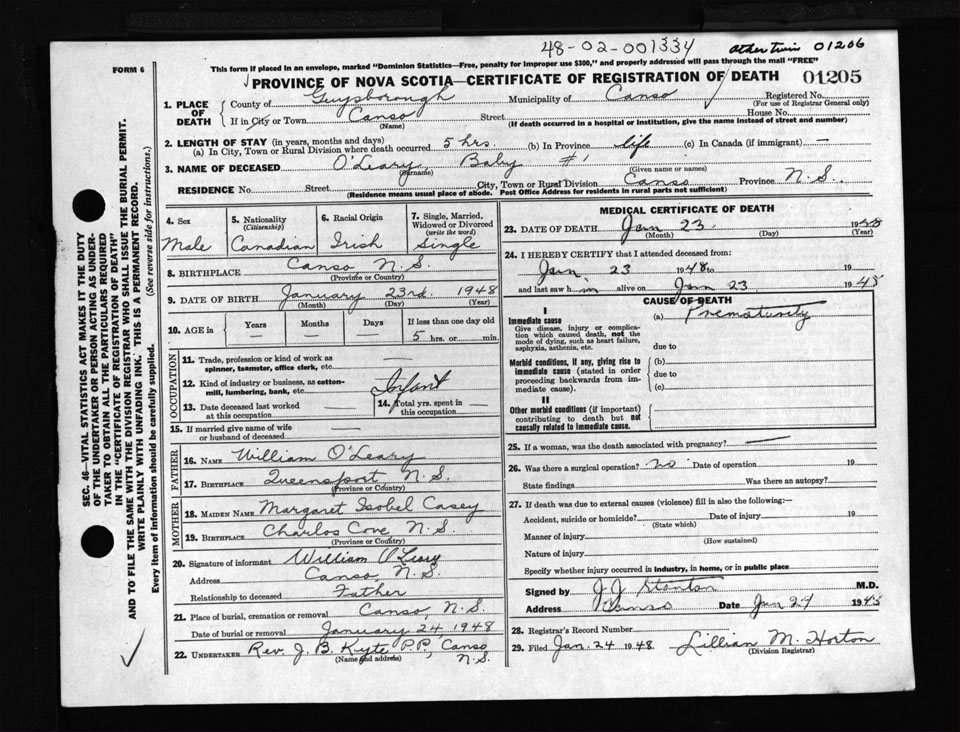 48-02-001334
other twin 01206
FORM 6
This form if placed in an envelope, marked "Dominion Statistics—Free, penalty for improper use $300," and properly addressed will pass through the mail "FREE"
PROVINCE OF NOVA SCOTIA—CERTIFICATE OF REGISTRATION OF DEATH 01205
1. PLACE OF DEATH
County of Guysborough Municipality of Canso Registered No.
(For use of Registrar General only)
If in City or Town Canso Street House No.
(Name) (If death occurred in a hospital or institution, give the name instead of street and number)
2. LENGTH OF STAY (in years, months and days)
(a) In City, Town or Rural Division where death occurred 5 hrs. (b) In Province life (c) In Canada (if immigrant) —
3. NAME OF DECEASED O'Leary Baby #1
(Surname) (Given name or names)
RESIDENCE No Street City, Town or Rural Division Canso Province N.S.
(Residence means usual place of abode. Post Office Address for residents in rural parts not sufficient)
4. Sex Male
5. Nationality (Citizenship) Canadian
6. Racial Origin Irish
7. Single, Married, Widowed or Divorced (write the word) Single
8. BIRTHPLACE Canso N.S.
(Province or Country)
9. DATE OF BIRTH January 23rd 1948
(Month) (Day) (Year)
10. AGE in Years Months Days If less than one day old
— 5 hrs. or min.
OCCUPATION
11. Trade, profession or kind of work as spinner, teamster, office clerk, etc. —
12. Kind of industry or business, as cotton-mill, lumbering, bank, etc. Infant
13. Date deceased last worked at this occupation —
14. Total yrs. spent in this occupation —
15. If married give name of wife or husband of deceased —
FATHER
16. NAME William O'Leary
17. BIRTHPLACE Queensport N.S.
(Province or Country)
MOTHER
18. MAIDEN NAME Margaret Isobel Casey
19. BIRTHPLACE Charlos Cove N.S.
(Province or Country)
20. Signature of informant William O'Leary
Address Canso, N.S.
Relationship to deceased Father
21. Place of burial, cremation or removal Canso, N.S.
Date of burial or removal January 24, 1948
22. UNDERTAKER Rev. J. B. Kyte P.P., Canso N.S.
(Name and address)
MEDICAL CERTIFICATE OF DEATH
23. DATE OF DEATH Jan 23
(Month) (Day) (Year)
24. I HEREBY CERTIFY that I attended deceased from:
Jan 23 1948 to 19
and last saw h im alive on Jan 23
CAUSE OF DEATH
I
Immediate cause (a) Prematurity
Give disease, injury or complication which caused death, not the mode of dying, such as heart failure, asphyxia, asthenia, etc.
due to
Morbid conditions, if any, giving rise to immediate cause (stated in order proceeding backwards from immediate cause).
(b)
due to
(c)
II
Other morbid conditions (if important) contributing to death but not causally related to immediate cause.
25. If a woman, was the death associated with pregnancy? —
26. Was there a surgical operation? no Date of operation 19
State findings Was there an autopsy?
27. If death was due to external causes (violence) fill in also the following:—
Accident, suicide or homicide? Date of injury 19
(State which)
Manner of injury
(How sustained)
Nature of injury
Specify whether injury occurred in industry, in home, or in public place
Signed by J. J. Stanton M.D.
Address Canso Date Jan 24
28. Registrar's Record Number
29. Filed Jan. 24 1948 Lillian M. Horton
(Division Registrar)
SEC. 46—VITAL STATISTICS ACT MAKES IT THE DUTY
OF THE UNDERTAKER OR PERSON ACTING AS UNDER-
TAKER TO OBTAIN ALL THE PARTICULARS REQUIRED
IN THE "CERTIFICATE OF REGISTRATION OF DEATH"
AND TO FILE THE SAME WITH THE DIVISION REGISTRAR WHO SHALL ISSUE THE BURIAL PERMIT.
WRITE PLAINLY WITH UNFADING INK. THIS IS A PERMANENT RECORD.
Every item of information should be carefully supplied. (See reverse side for instructions.)